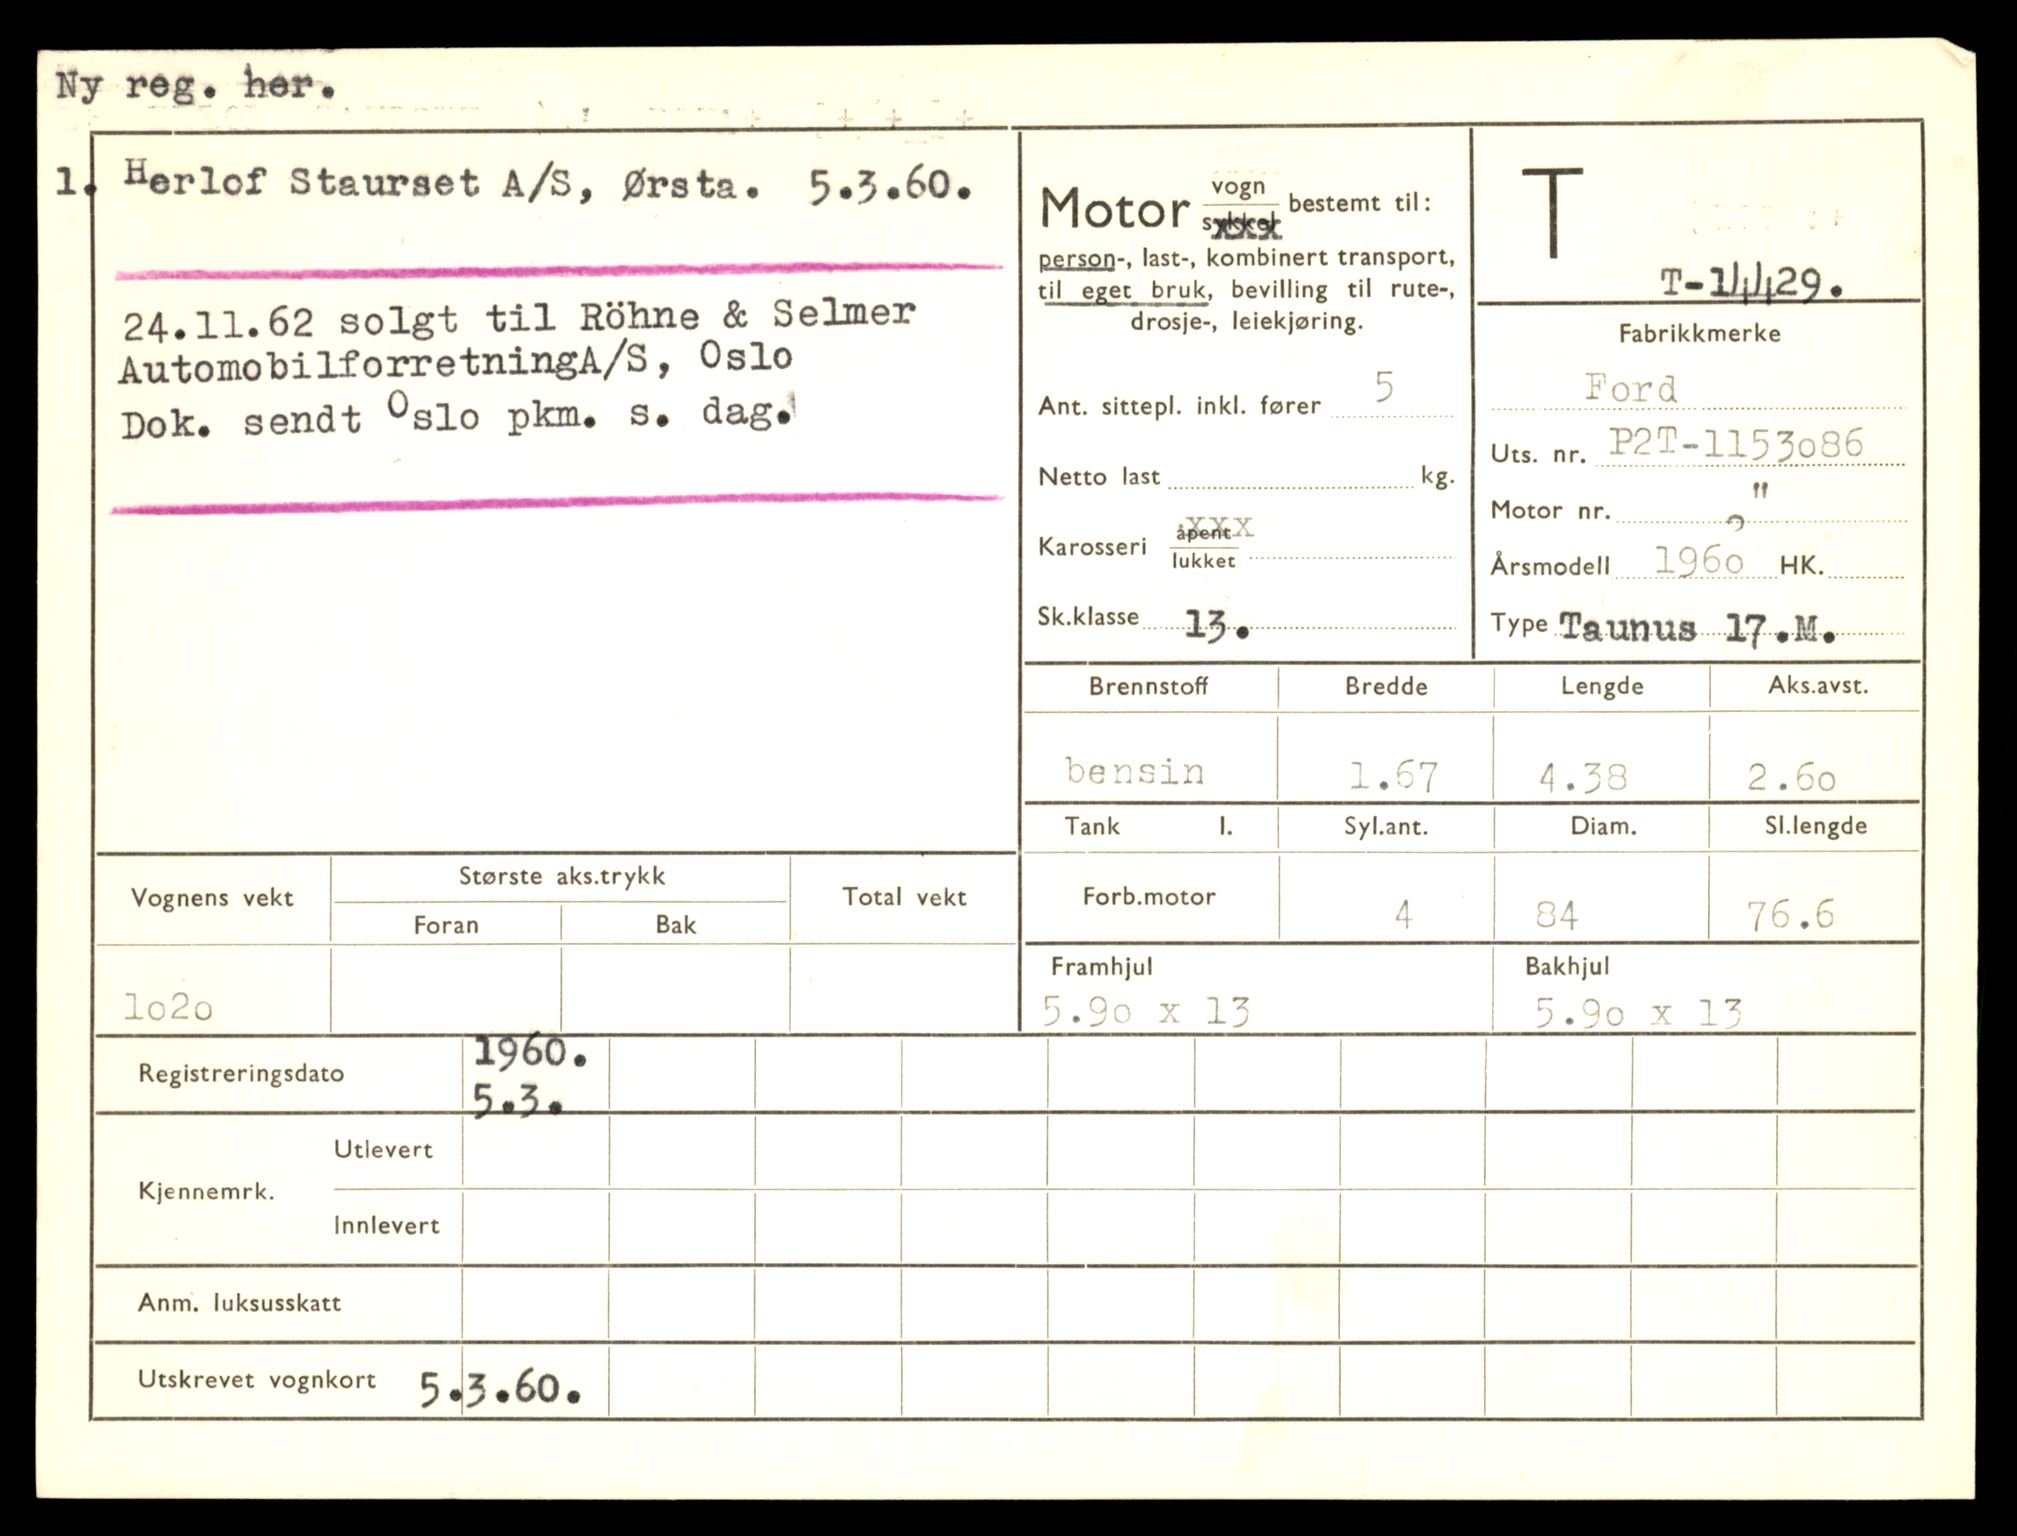 Ny reg. her.
1. Herlof Staurset A/S, Ørsta. 5.3.60.
24.11.62 solgt til Röhne & Selmer
AutomobilforretningA/S, Oslo
Dok. sendt Oslo pkm. s. dag.
Motor vogn bestemt til:
sykkel
person-, last-, kombinert transport,
til eget bruk, bevilling til rute-,
drosje-, leiekjøring.
Ant. sittepl. inkl. fører 5
Netto last kg.
Karosseri åpent xxx
lukket
Sk.klasse 13.
T
T-14429.
Fabrikkmerke
Ford
Uts. nr. P2T-1153o86
Motor nr. "
Årsmodell 196o HK.
Type Taunus 17.M.
Brennstoff Bredde Lengde Aks.avst.
bensin 1.67 4.38 2.6o
Tank l. Syl.ant. Diam. Sl.lengde
Forb.motor 4 84 76.6
Framhjul Bakhjul
5.9o x 13 5.9o x 13
Vognens vekt Største aks.trykk Total vekt
Foran Bak
lo2o
Registreringsdato 1960.
5.3.
Kjennemrk. Utlevert
Innlevert
Anm. luksusskatt
Utskrevet vognkort 5.3.60.